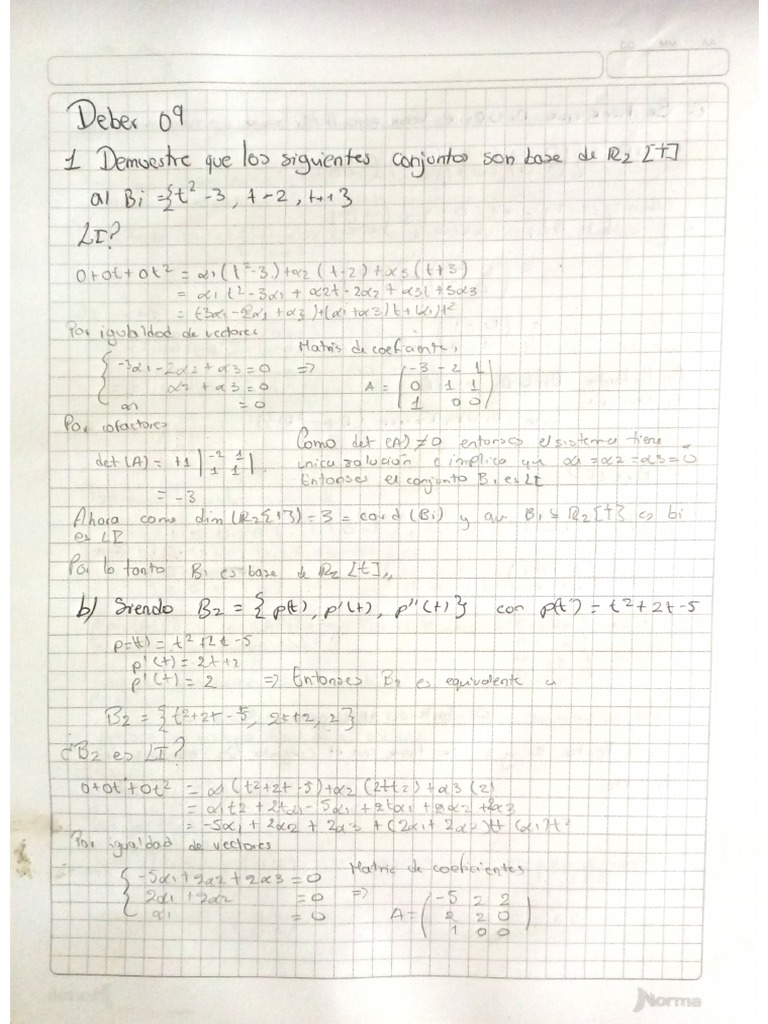 DD MM AA
Deber 09
1 Demuestre que los siguientes conjuntos son base de R2 [t]
a) Bi = {t² - 3, t - 2, t + 3
LI?
0+0t+0t² = α1(t²-3)+α2(t-2)+α3(t+3)
= α1t²-3α1+α2t-2α2+α3t+3α3
= (-3α1-2α2+α3)+(α1+α3)t+(α1)t²
Por igualdad de vectores
Matris de coeficiente,
-3α1-2α2+α3=0 => A = (-3 -2 1
α2+α3=0 0 1 1
α1 =0 1 0 0)
Por cofactores
det(A) = +1 |-2 1
1 1|
= -3
Como det (A) ≠ 0 entonces el sistema tiene
unica solución e implica que α1=α2=α3=0
Entonses el conjunto B1 es LI
Ahora como dim(R2{t}) = 3 = card (Bi) y que Bi ⊆ R2[t] es bi
es LI
Por lo tanto B1 es base de R2 [t],,
b) Siendo B2 = {p(t), p'(t), p''(t)} con p(t) = t²+2t-5
p=(t) = t²+2t-5
p'(t) = 2t+2
p'(t) = 2 => Entonses B2 es equivalente a
B2 = {t²+2t-5, 2t+2, 2}
¿B2 es LI?
0+0t+0t² = α1(t2+2t-5)+α2(2t+2)+α3(2)
= α1t2+2tα1-5α1+2tα1+2α2+2α3
= -5α1+2α2+2α3+(2α1+2α2)t+(α1)t²
Por igualdad de vectores
Matriz de coeficientes
-5α1+2α2+2α3=0 => A = (-5 2 2
2α1+2α2 =0 2 2 0
α1 =0 1 0 0)
Norma